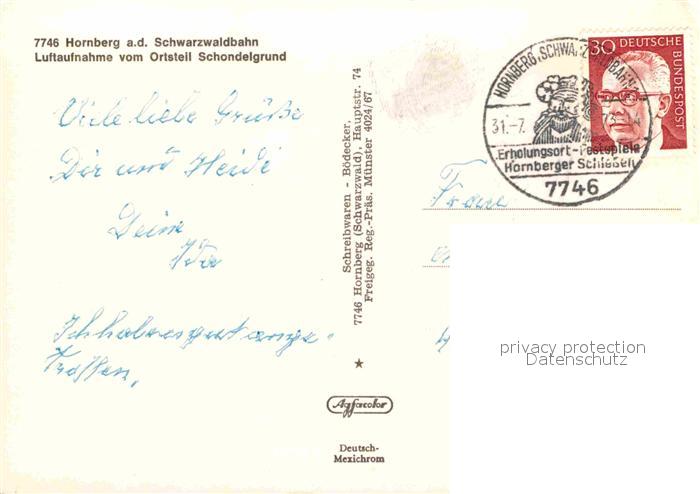 7746 Hornberg a.d. Schwarzwaldbahn
Luftaufnahme vom Ortsteil Schondelgrund
Viele liebe Grüße
Dir und Heidi
Deine
Ida
Ich habe es gut ange-
troffen.
Schreibwaren - Bödecker,
7746 Hornberg (Schwarzwald), Hauptstr. 74
Freigeg. Reg.-Präs. Münster 4024/67
Agfacolor
Deutsch-
Mexichrom
HORNBERG, SCHWARZWALDBAHN
31.-7.
Erholungsort-Festspiele
Hornberger Schießen
7746
30 DEUTSCHE
BUNDESPOST
Frau
privacy protection
Datenschutz